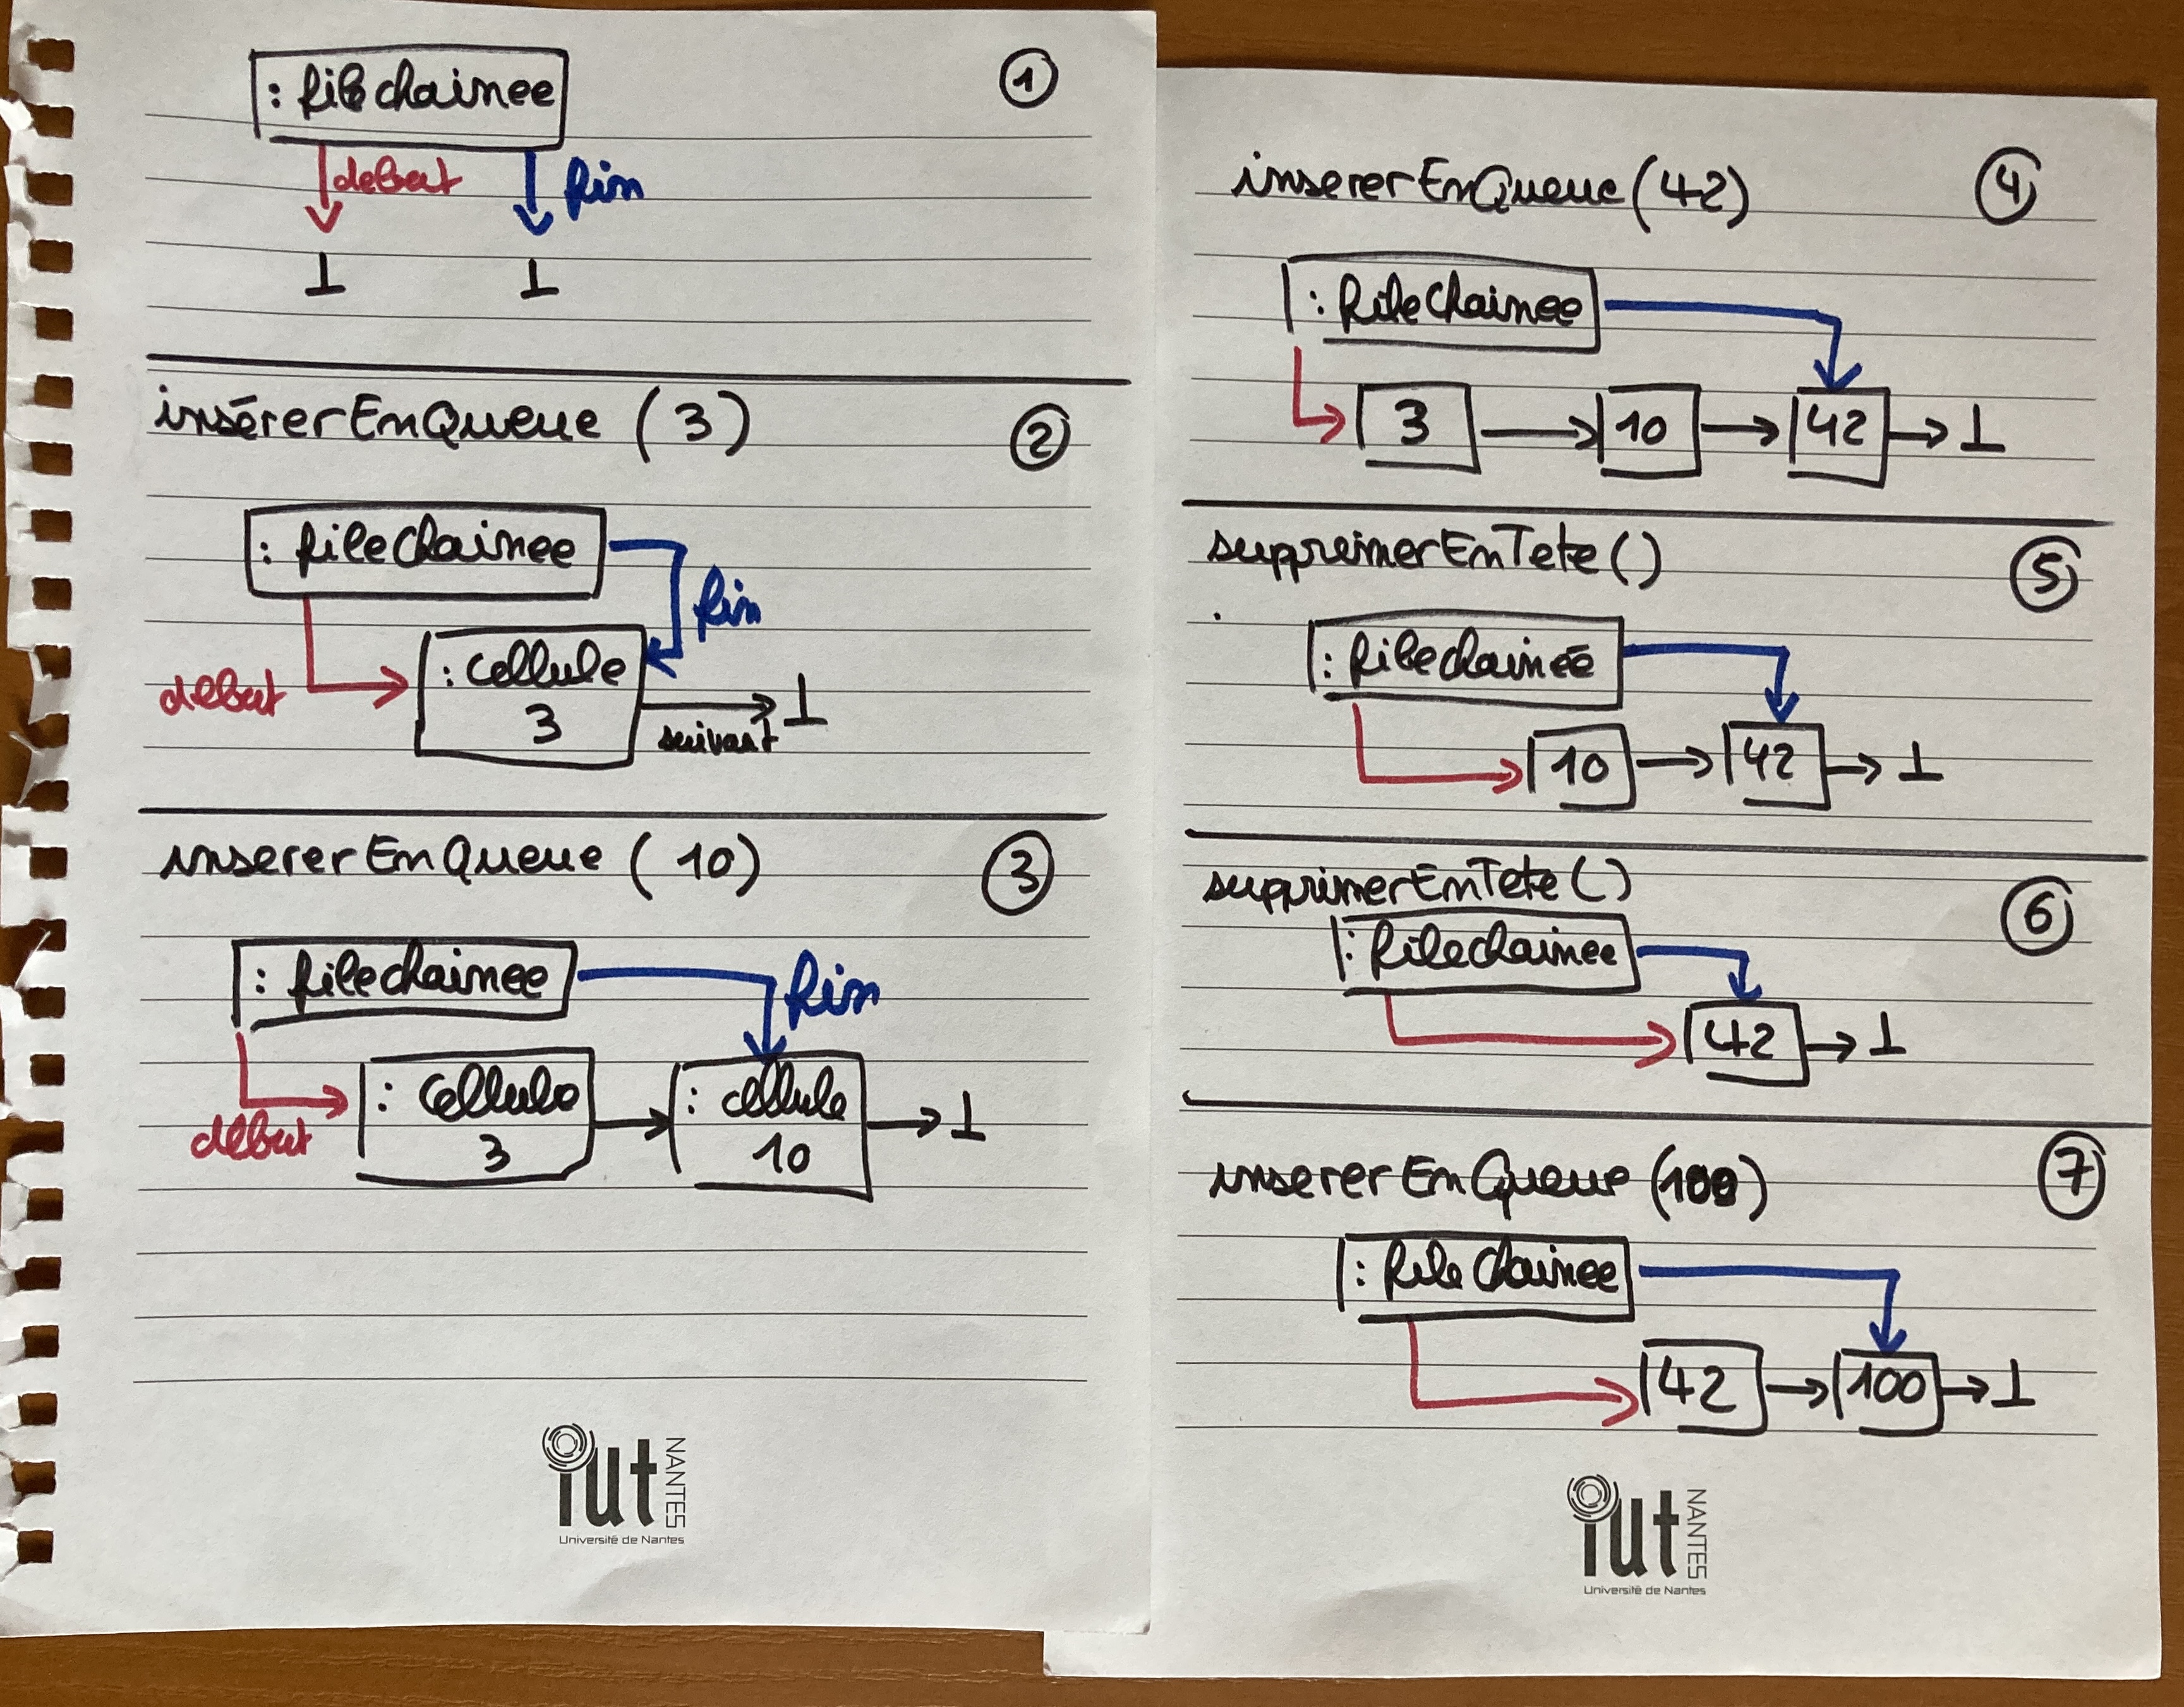 : filechainee
①
debut
fin
⊥ ⊥
insérerEnQueue (3)
②
: fileChainee
fin
debut
: cellule
3
suivant
⊥
insererEnQueue (10)
③
: filechainee
fin
debut
: cellule
3
: cellule
10
⊥
IUT NANTES
Université de Nantes
insererEnQueue (42)
④
: fileChainee
3 10 42 ⊥
suppreimerEnTete ()
⑤
: filechainée
10 42 ⊥
supprimerEnTete ()
⑥
: filechainee
42 ⊥
insererEnQueue (100)
⑦
: fileChainee
42 100 ⊥
IUT NANTES
Université de Nantes